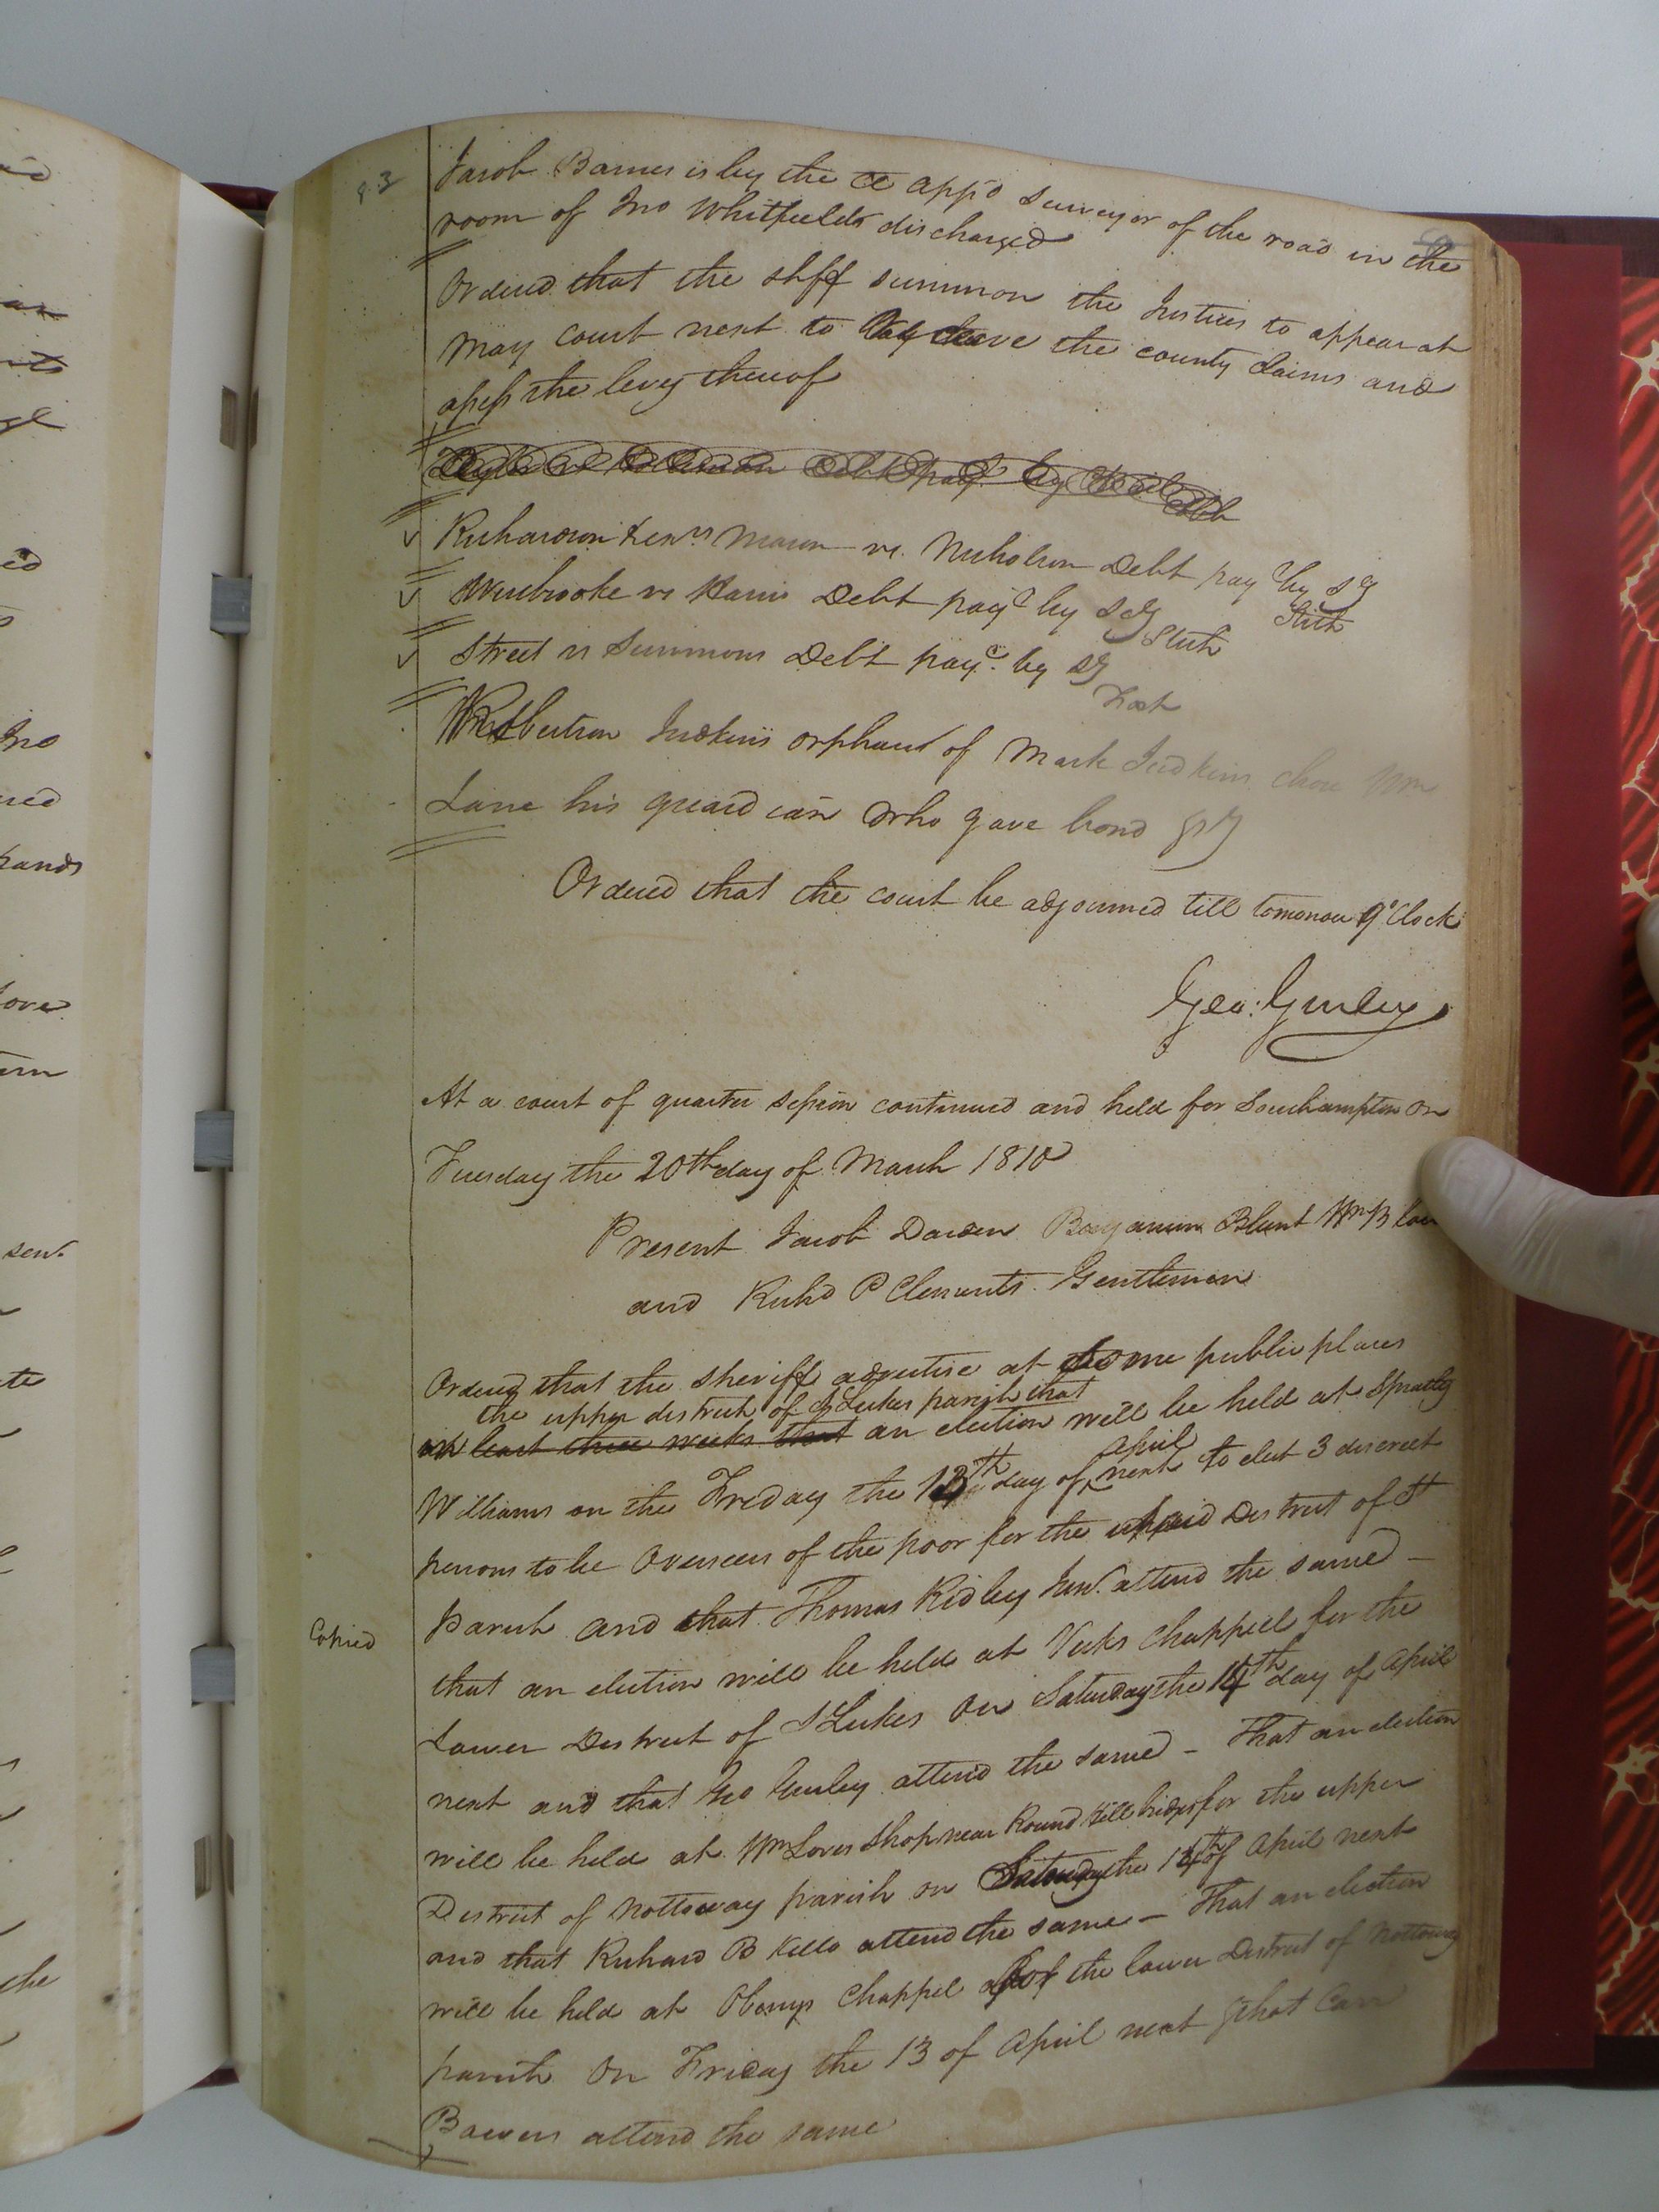 93
Jacob Barnes is by the Ct app'd surveyor of the road in the
room of Jno Whitfield discharged
Ordered that the shff summon the Justices to appear at
May court next to receive the county claims and
assess the levy thereof
Richardson & exrs Mason vs. Nicholson Debt pay.d by SG
Stith
Westbrooke vs Harris Debt pay.d by SG
Stith
Street vs Simmons Debt pay.d by SG
Robertson Judkins orphan of Mark Judkins chose Wm
Lane his guardian who gave bond &c
Ordered that the court be adjourned till tomorrow 9 oClock
Geo: Gurley
At a court of quarter session continued and held for Southampton on
Tuesday the 20th day of March 1810
Present Jacob Darden Benjamin Blunt Wm B
and Richd P Clements Gentlemen
Ordered that the sheriff advertise at some public places
the upper district of St Lukes parish that
at least three weeks that an election will be held at Spratley
Williams on the Friday the 13th day of April next to elect 3 discreet
persons to be Overseers of the poor for the District of St
Parish and that Thomas Ridley Junr. attend the same -
that an election will be held at Vicks Chappell for the
Copied
Lower District of St Lukes On Saturday the 14th day of April
next and that Geo Gurley attend the same - That an election
will be held at Wm Loves Shop near Round Hill bridge for the upper
District of Nottoway parish on Saturday the 14th of April next
and that Richard B Kello attend the same - That an election
will be held at Oberrys Chappel for the lower District of Nottoway
parish On Friday the 13 of April next & that Carr
Bowers attend the same